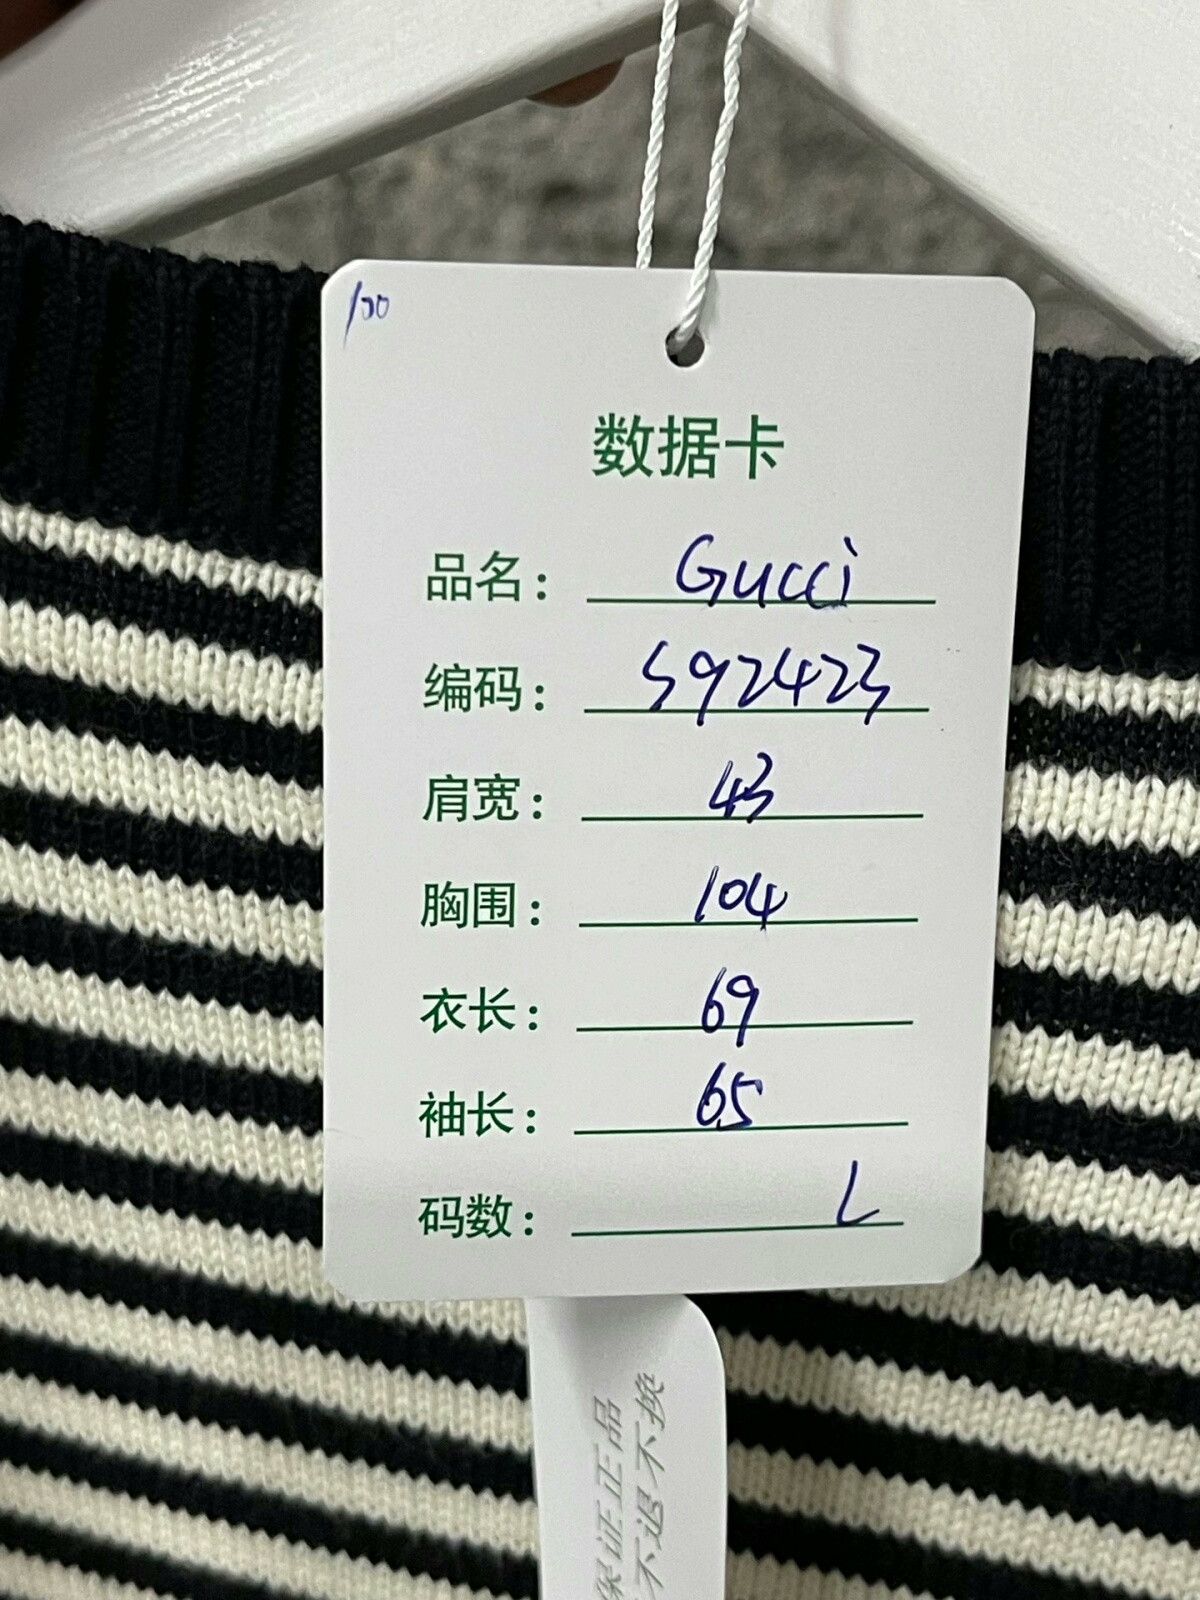 100
数据卡
品名: Gucci
编码: 592423
肩宽: 43
胸围: 104
衣长: 69
袖长: 65
码数: L
保证正品
不退不换